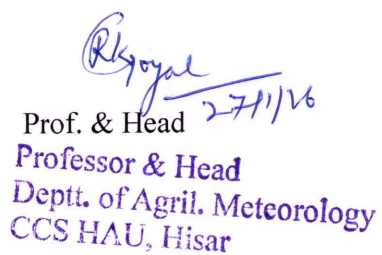 RKGoyal
27/1/26
Prof. & Head
Professor & Head
Deptt. of Agril. Meteorology
CCS HAU, Hisar